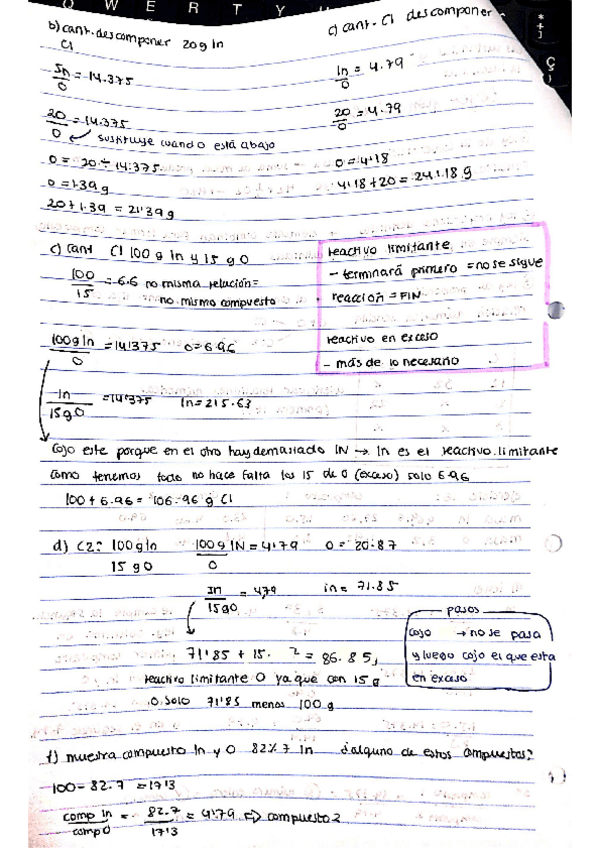 Q W E R T Y
b) cant. descomponer 20g In
C1
In/O = 14.375
20/O = 14.375
sustituye cuando O está abajo
O = 20 ÷ 14.375
O = 1.39 g
20 + 1.39 = 21'39 g
c) cant. C1 descomponer
In/O = 4.79
20/O = 4.79
O = 4'18
4'18 + 20 = 24.1.18 g
c) Cant C1 100 g In y 15 g O
100/15 = 6.6 no misma relación =
no mismo compuesto
100g In/O = 14'375 O = 6.96
In/15gO = 14'375 In = 215.63
reactivo limitante
- terminará primero = no se sigue
reacción = FIN
reactivo en exceso
- más de lo necesario
Cojo este porque en el otro hay demasiado IN → In es el reactivo limitante
como tenemos todo no hace falta los 15 de O (exceso) solo 6.96
100 + 6.96 = 106.96 g C1
d) C2: 100gIn 100g IN/O = 4'79 O = 20.87
15 g O
In/15gO = 4,79 in = 71.85
71'85 + 15. = 86.85,
reactivo limitante O ya que con 15 g
O solo 71'85 menos 100 g
pasos
cojo → no se pasa
y luego cojo el que esta
en exceso
f) muestra compuesto In y O 82%7 In ¿alguno de estos compuestos?
100 - 82.7 = 17'3
comp In/comp O = 82.7/17'3 = 4'79 ⇒ compuesto 2